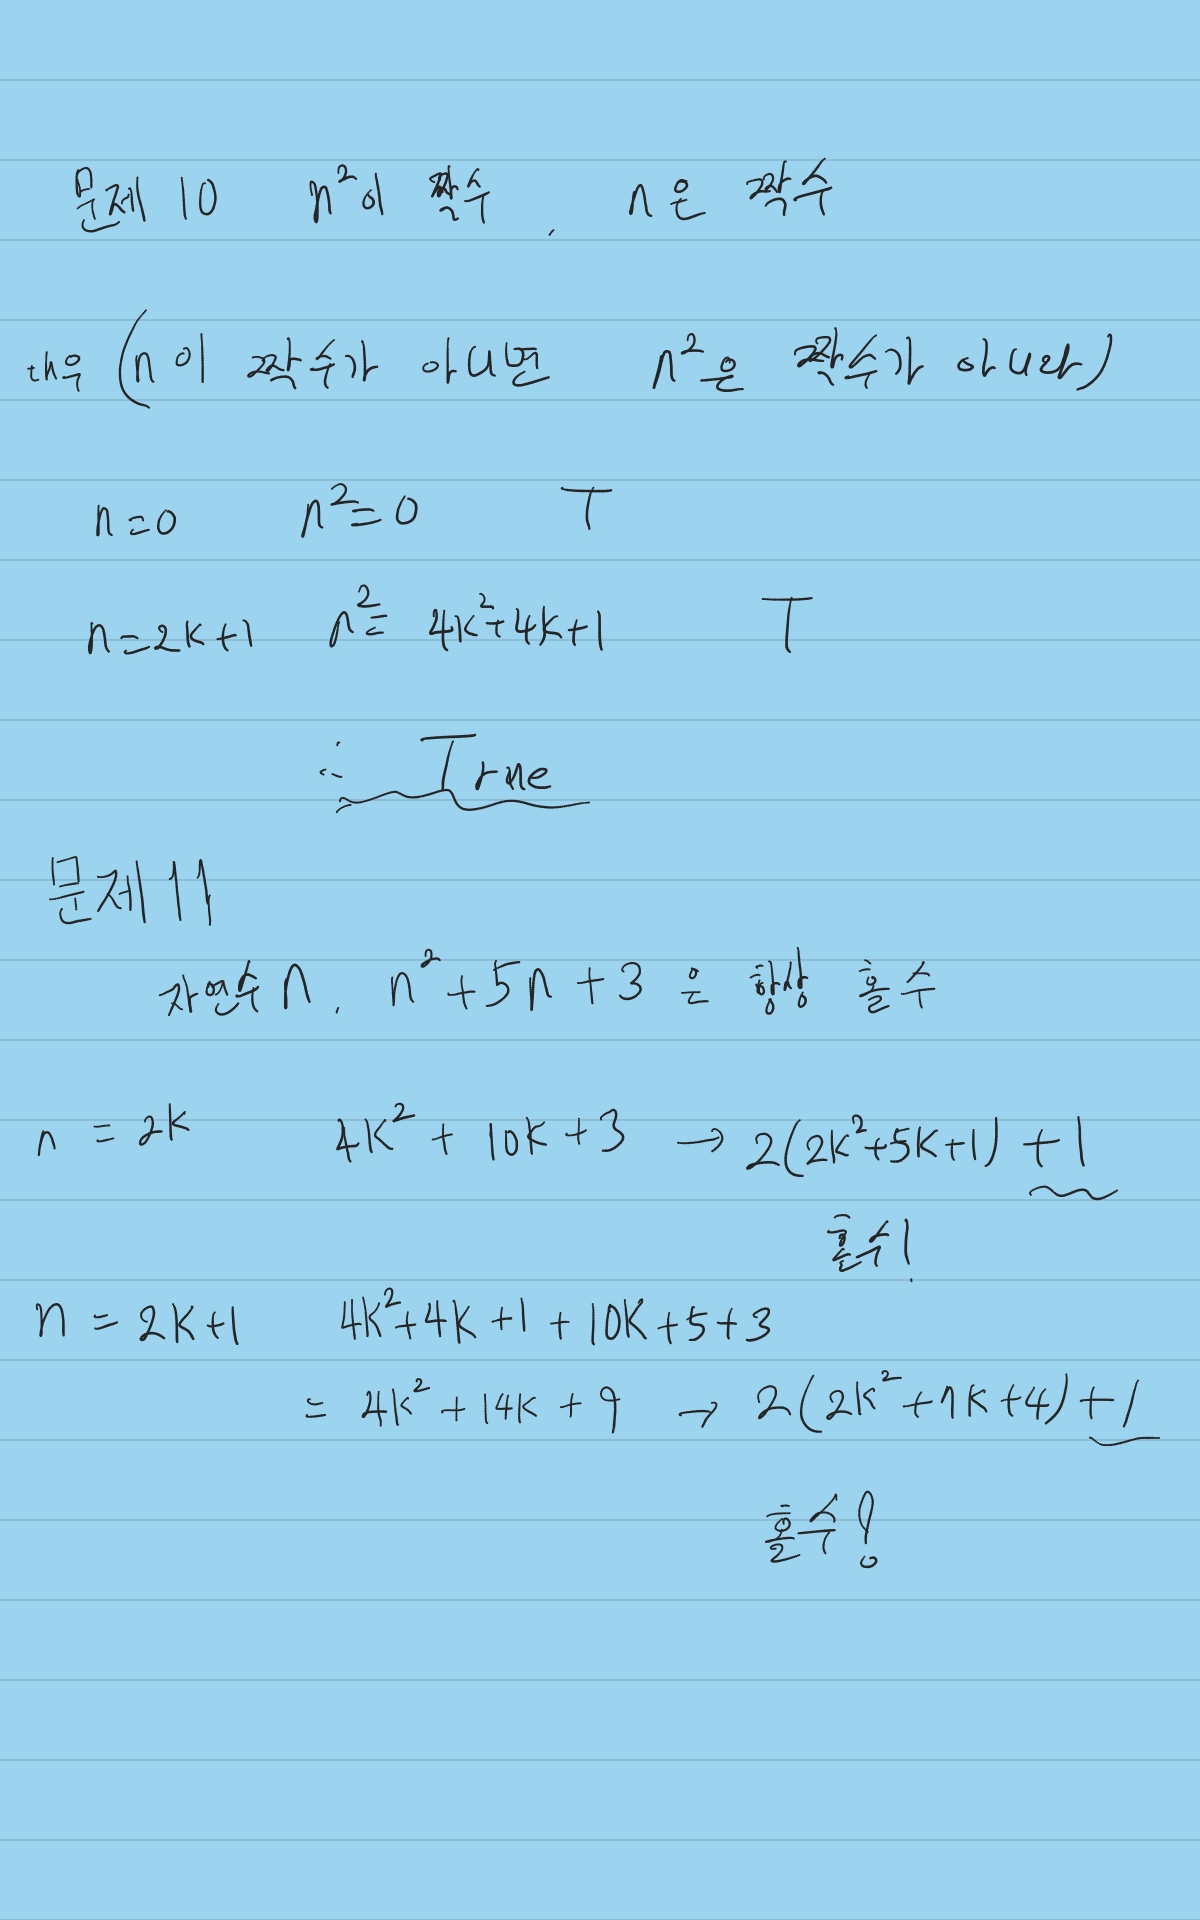 문제 10 n²이 짝수, n은 짝수
대우 (n이 짝수가 아니면 n²은 짝수가 아니라)
n=0 n²=0 T
n=2k+1 n²= 4k²+4k+1 T
∴ True
문제 11
자연수 n, n²+5n+3 은 항상 홀수
n = 2k 4k² + 10k + 3 → 2(2k²+5k+1) +1
홀수!
n = 2k+1 4k²+4k+1+10k+5+3
= 4k²+14k+9 → 2(2k²+7k+4)+1
홀수!